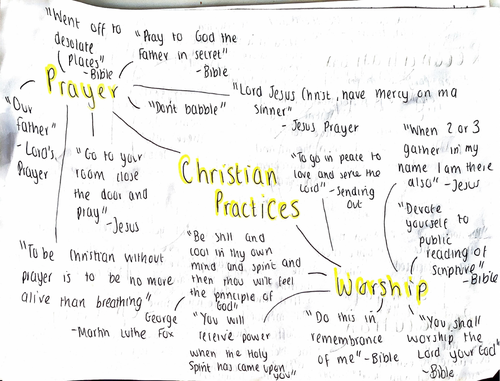 "Went off to
desolate
places"
- Bible
"Pray to God the
Father in secret"
- Bible
Prayer
"Our
Father"
- Lord's
Prayer
"Don't babble"
"Lord Jesus Christ, have mercy on ma
sinner"
- Jesus Prayer
"Go to your
room close
the door and
pray"
- Jesus
"To be Christian without
prayer is to be no more
alive than breathing"
- Martin Luthe
Christian
Practices
"To go in peace to
love and serve the
Lord" - Sending
Out
"When 2 or 3
gather in my
name I am there
also" - Jesus
"Devote
yourself to
public
reading of
Scripture"
- Bible
"Be still and
cool in thy own
mind and spirit and
then thou wilt feel
the principle of
God"
George
Fox
Worship
"You will
receive power
when the Holy
Spirit has came upon
you"
"Do this in
remembrance
of me" - Bible
"You shall
worship the
Lord your God"
- Bible